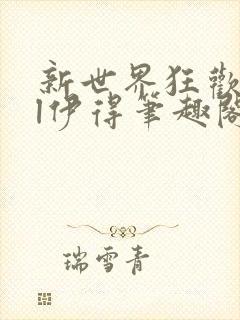 新世界狂歡
l伊得筆趣閣
瑞雪青